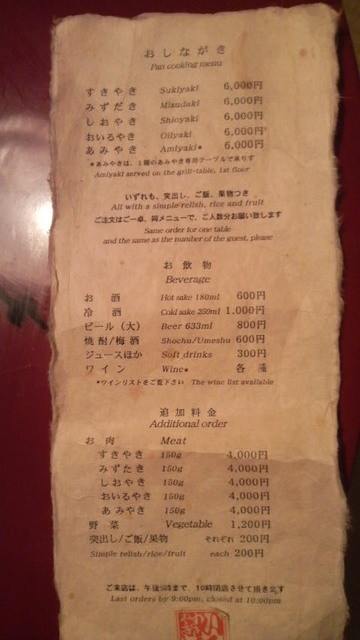 おしながき
Pan cooking menu
すきやき Sukiyaki 6,000円
みずだき Mizudaki 6,000円
しおやき Shioyaki 6,000円
おいるやき Oilyaki 6,000円
あみやき Amiyaki* 6,000円
*あみやきは、1階のあみやき専用テーブルで承ります
Amiyaki served on the grill-table, 1st floor
いずれも、突出し、ご飯、果物つき
All with a simple relish, rice and fruit
ご注文はご一卓、同メニューで、ご人数分お願い致します
Same order for one table
and the same as the number of the guest, please
お飲物
Beverage
お酒 Hot sake 180ml 600円
冷酒 Cold sake 250ml 1,000円
ビール(大) Beer 633ml 800円
焼酎/梅酒 Shochu/Umeshu 600円
ジュースほか Soft drinks 300円
ワイン Wine* 各種
*ワインリストをご覧下さい The wine list available
追加料金
Additional order
お肉 Meat
すきやき 150g 4,000円
みずたき 150g 4,000円
しおやき 150g 4,000円
おいるやき 150g 4,000円
あみやき 150g 4,000円
野菜 Vegetable 1,200円
突出し/ご飯/果物 それぞれ 200円
Simple relish/rice/fruit each 200円
ご来店は、午後9時まで、10時閉店させて頂きます
Last orders by 9:00pm, closed at 10:00pm